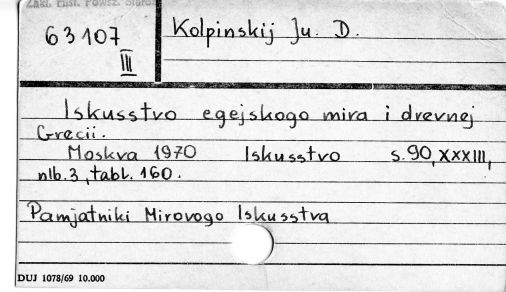 Zakł. Hist. Powsz. Staroż
63107
III
Kolpinskij Ju. D.
Iskusstvo egejskogo mira i drevnej
Grecii.
Moskva 1970 Iskusstvo s.90, XXXIII,
nlb.3, tabl. 160.
Pamjatniki Mirovogo Iskusstva
DUJ 1078/69 10.000